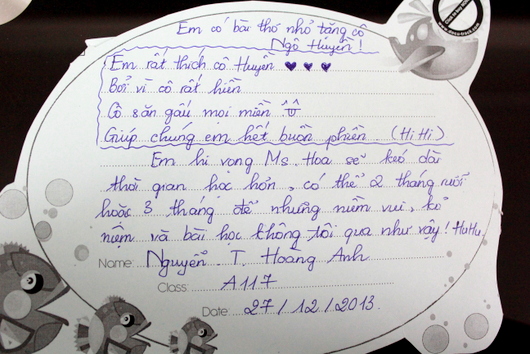 Em có bài thơ nhỏ tặng cô
Ngô Huyền!
Em rất thích cô Huyền ♥ ♥ ♥
Bởi vì cô rất hiền
Cô săn gấu mọi miền
Giúp chúng em hết buồn phiền. (HiHi)
Em hi vọng Ms. Hoa sẽ kéo dài
thời gian học hơn, có thể 2 tháng rưỡi
hoặc 3 tháng để những niềm vui, kỉ
niệm và bài học không trôi qua như vậy! HuHu
Name: Nguyễn. T. Hoàng Anh
Class: A117
Date: 27/12/2013